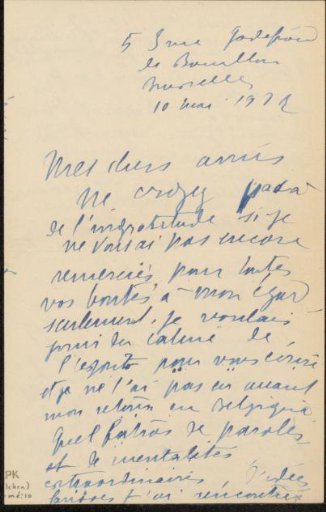 53 rue Godefroid
de Bouillon
Bruxelles
10 mai 19
Mes chers amis
Ne croyez pas à
de l'ingratitude si je
ne vous ai pas encore
remerciés pour toutes
vos bontés à mon égard
seulement, je voulais
jouir du calme de
l'esprit pour vous écrire
et je ne l'ai pas eu avant
mon retour en Belgique
Quel fatras de paroles
et de mentalités
extraordinaires, d'idées
j'ai rencontré
PK